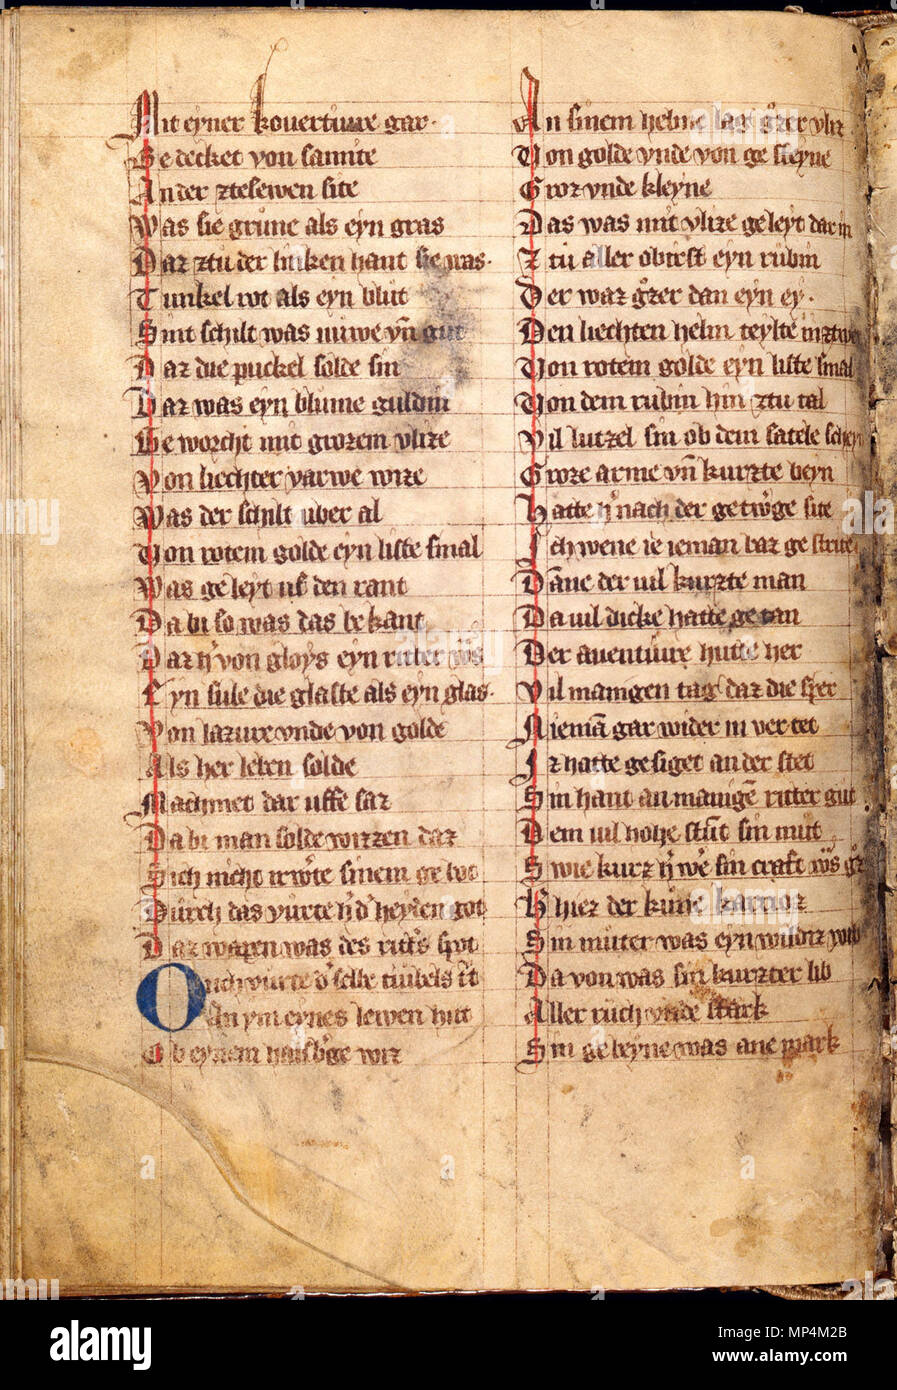 Mit eyner kouerture gar·
Be decket von samite
An der ztesewen site
Was sie grůne als eyn gras
Daz ztu der linken hant sie was·
Tunkel rot als eyn blůt
Sint schilt was nuwe vn̄ gut
Daz die puckel solde sin
Daz was eyn blůme guldin
Ge worcht mit grozem vlize
Von liechter varwe wize
Was der schilt uber al
Von rotem golde eyn liste smal
Was ge leyt uf den rant
Da bi so was das be kant
Daz h̓ von gloys eyn ritter w̓s
Eyn sule die glaste als eyn glas·
Von lazure vnde von golde
Als her leben solde
Machmet dar uffe saz
Da bi man solde wizzen daz
Sich nicht irw̓te sinem ge bot
Durch das vurte h̓ d̓ heyden got
Daz wapen was des ritt̓s spot
Ouch vurte d̓ selbe tiubels
An ym eynes lewen hut
Ob eynem halsb̓ge wiz
An sinem helme lag g̓zer vliz
Von golde vnde von ge steyne
Groz vnde kleyne
Das was mit vlize ge leyt dar in
Ztu aller obirst eyn rubin
Der waz g̓zer dan eyn ey·
Den liechten helm teylte inztwey
Von rotem golde eyn liste smal
Von dem rubin hin ztu tal
Vil lutzel sin ob dem satele scheyn
Groze arme vn̄ kurzte beyn
Hatte h̓ nach der getw̓ge site
Ich wene ie ieman baz ge strite
Dāne der uil kurzte man
Da uil dicke hatte ge tan
Der auenture hutte her
Vil manigen tag daz die sper
Niemā gar wider in ver tet
Iz hatte ge siget an der stet
Sin hant an manigē ritter gut
Dem uil hohe stūt sin mut
Swie kurz h̓ we̓ sin craft w̓s g̓z
H hiez der kune karrioz
Sin muter was eyn wildiz wib
Da von was sin kurzter lib
Aller ruch vnde stark
Sin ge beyne was ane mark
alamy
alamy
Image ID: MP4M2B
www.alamy.com